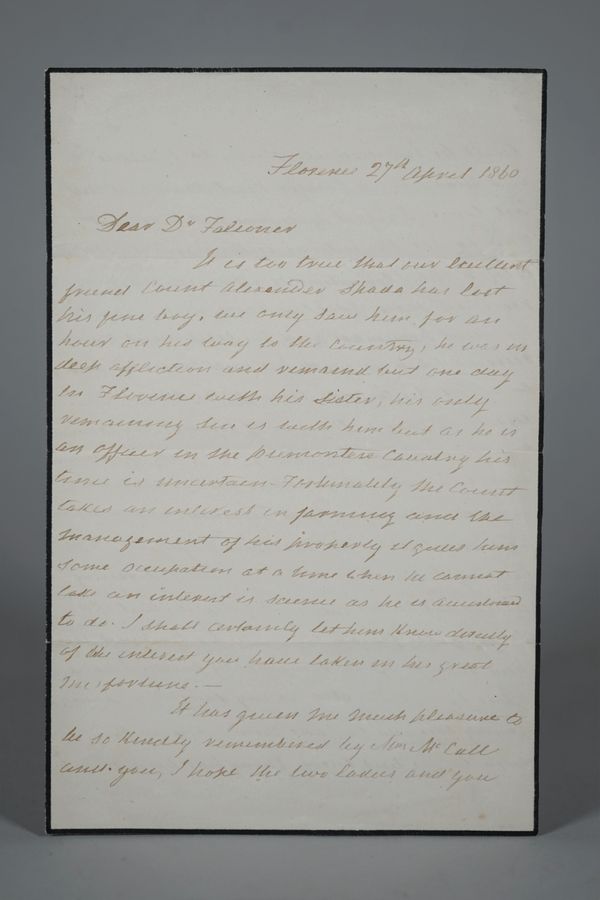 Florence 27th April 1860
Dear Dr Falconer
It is too true that our excellent
friend Count Alexander Spada has lost
his fine boy, we only saw him for an
hour on his way to the country, he was in
deep affliction and remained but one day
in Florence with his Sister, his only
remaining Son is with him but as he is
an officer in the Piemontese Cavalry his
time is uncertain - Fortunately the Count
takes an interest in farming and the
management of his property it gives him
some occupation at a time when he cannot
take an interest in science as he is accustomed
to do. I shall certainly let him know directly
of the interest you have taken in his great
misfortune. —
It has given me much pleasure to
be so kindly remembered by Mrs McCall
and you, I hope the two Ladies and you